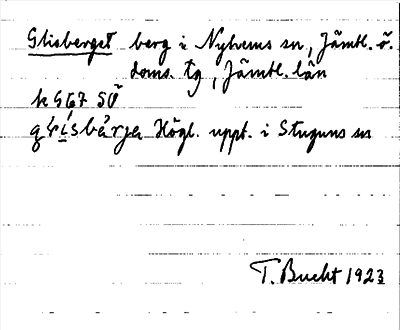 Glisberget berg i Nyhems sn, Jämtl. ö.
doms. tg, Jämtl. län
k 567 SÖ
Högl. uppt. i Stuguns sn
T. Bucht 1923